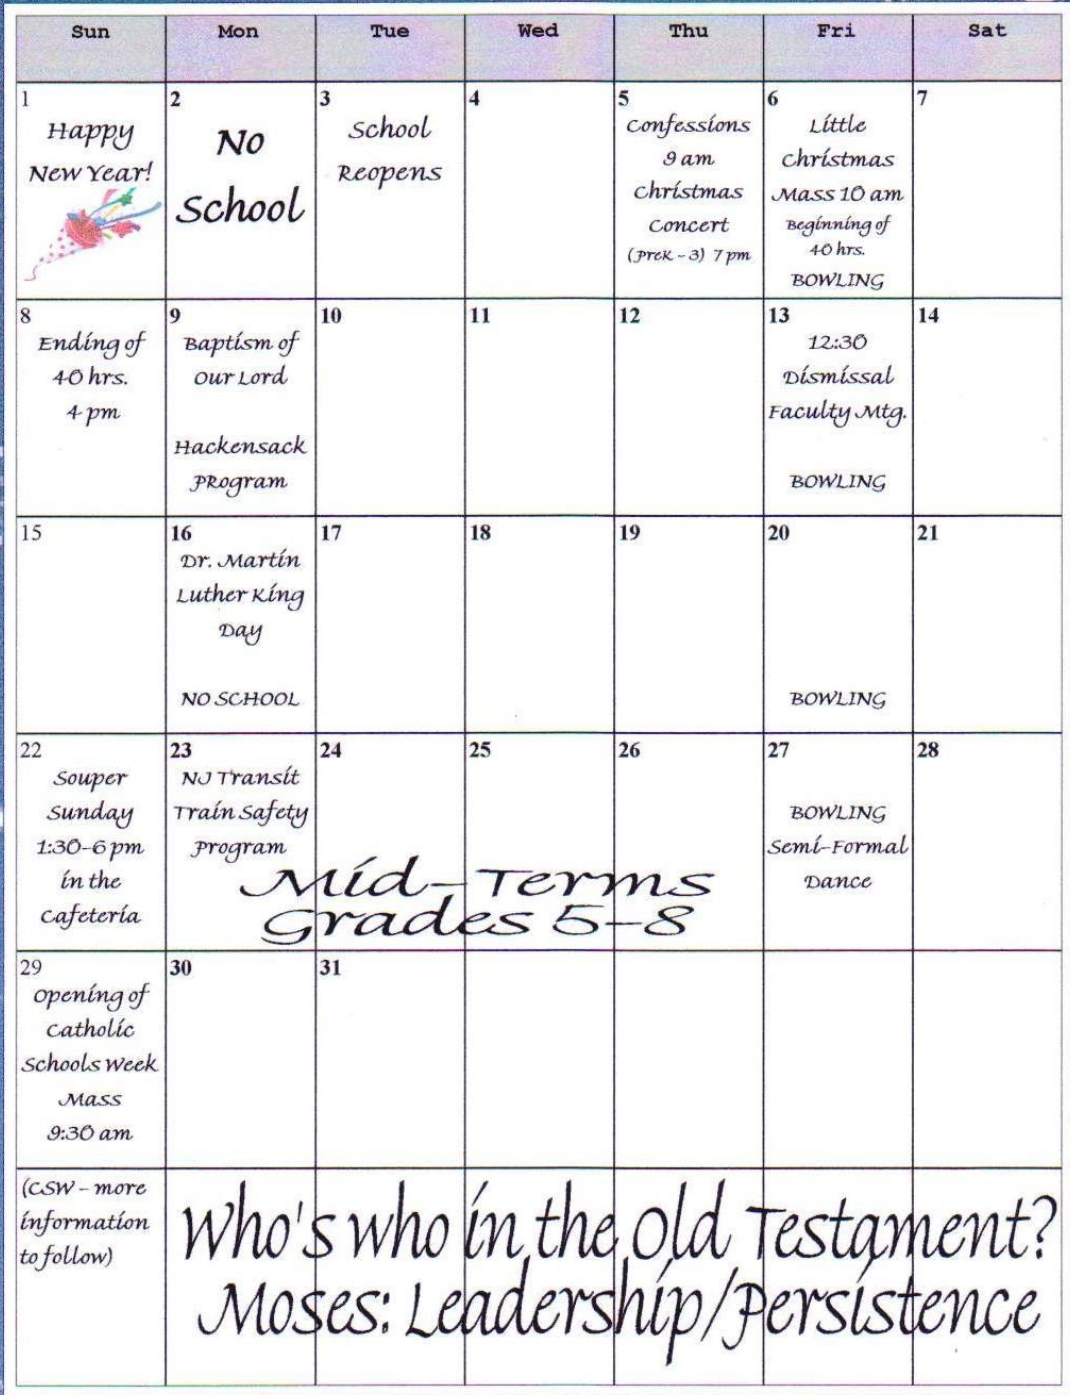 Sun Mon Tue Wed Thu Fri Sat
1
Happy
New Year!
2
No
School
3
School
Reopens
4
5
Confessions
9 am
Christmas
Concert
(PreK - 3) 7 pm
6
Little
Christmas
Mass 10 am
Beginning of
40 hrs.
BOWLING
7
8
Ending of
40 hrs.
4 pm
9
Baptism of
Our Lord
Hackensack
PRogram
10
11
12
13
12:30
Dismissal
Faculty Mtg.
BOWLING
14
15
16
Dr. Martin
Luther King
Day
NO SCHOOL
17
18
19
20
BOWLING
21
22
Souper
Sunday
1:30-6 pm
in the
Cafeteria
23
NJ Transit
Train Safety
Program
24
25
26
Mid-Terms
Grades 5-8
27
BOWLING
Semi-Formal
Dance
28
29
Opening of
Catholic
Schools Week
Mass
9:30 am
30
31
(CSW - more
information
to follow)
Who's who in the Old Testament?
Moses: Leadership/Persistence